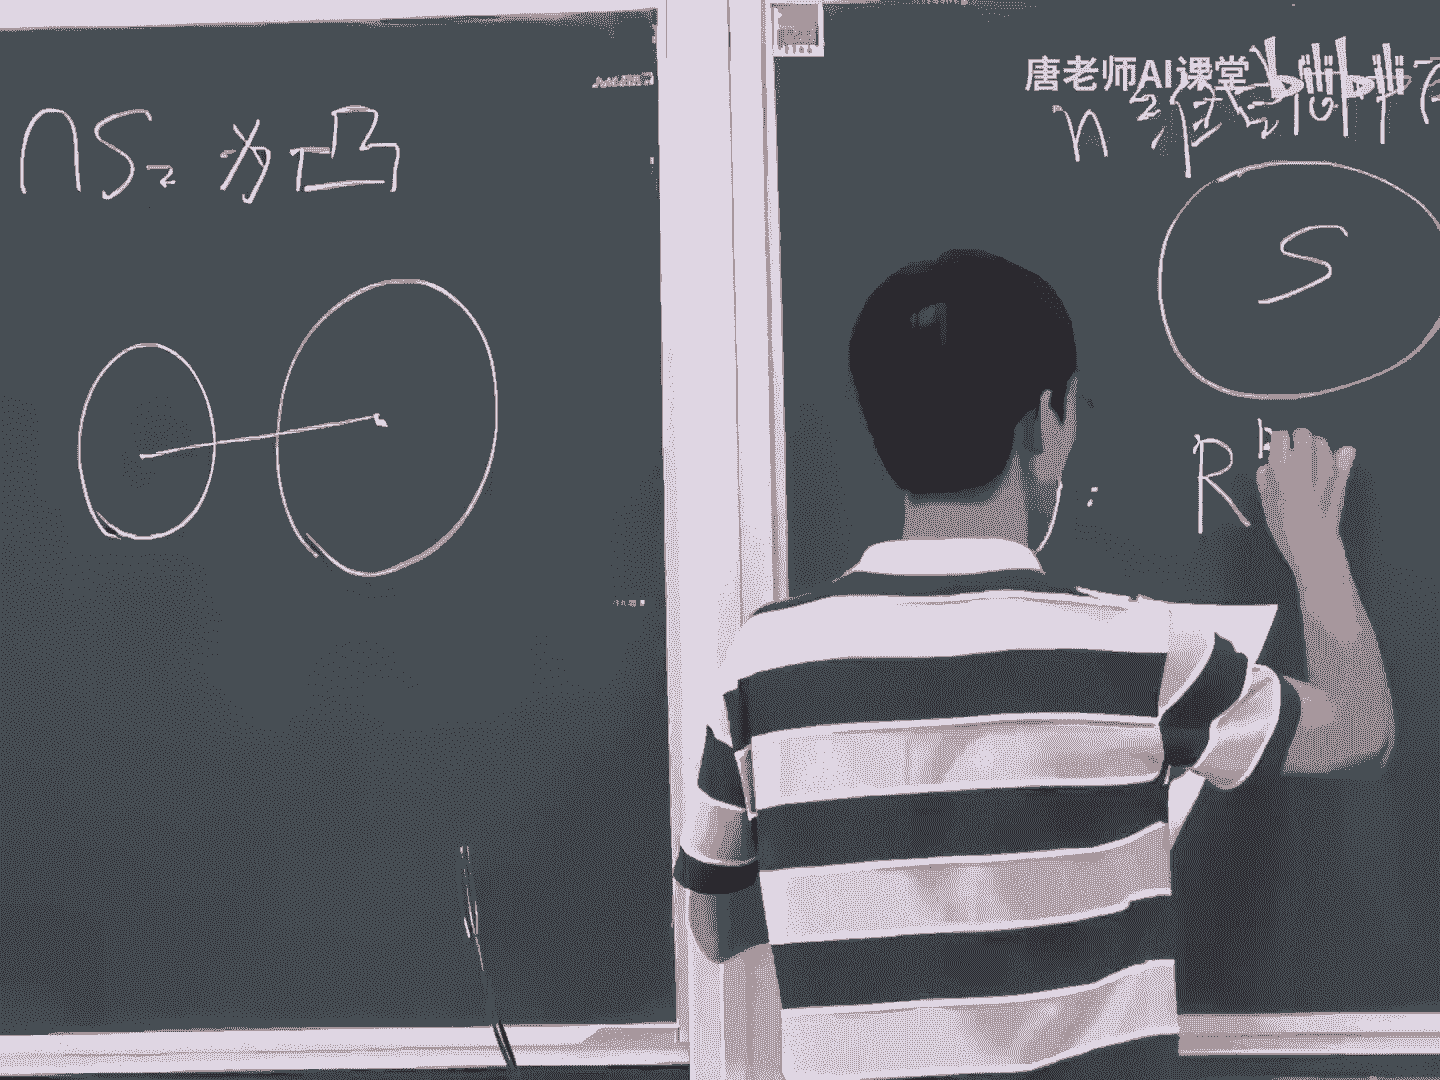 ∩S₂ 为凸
唐老师AI课堂 bilibili
n 维空间
S
R